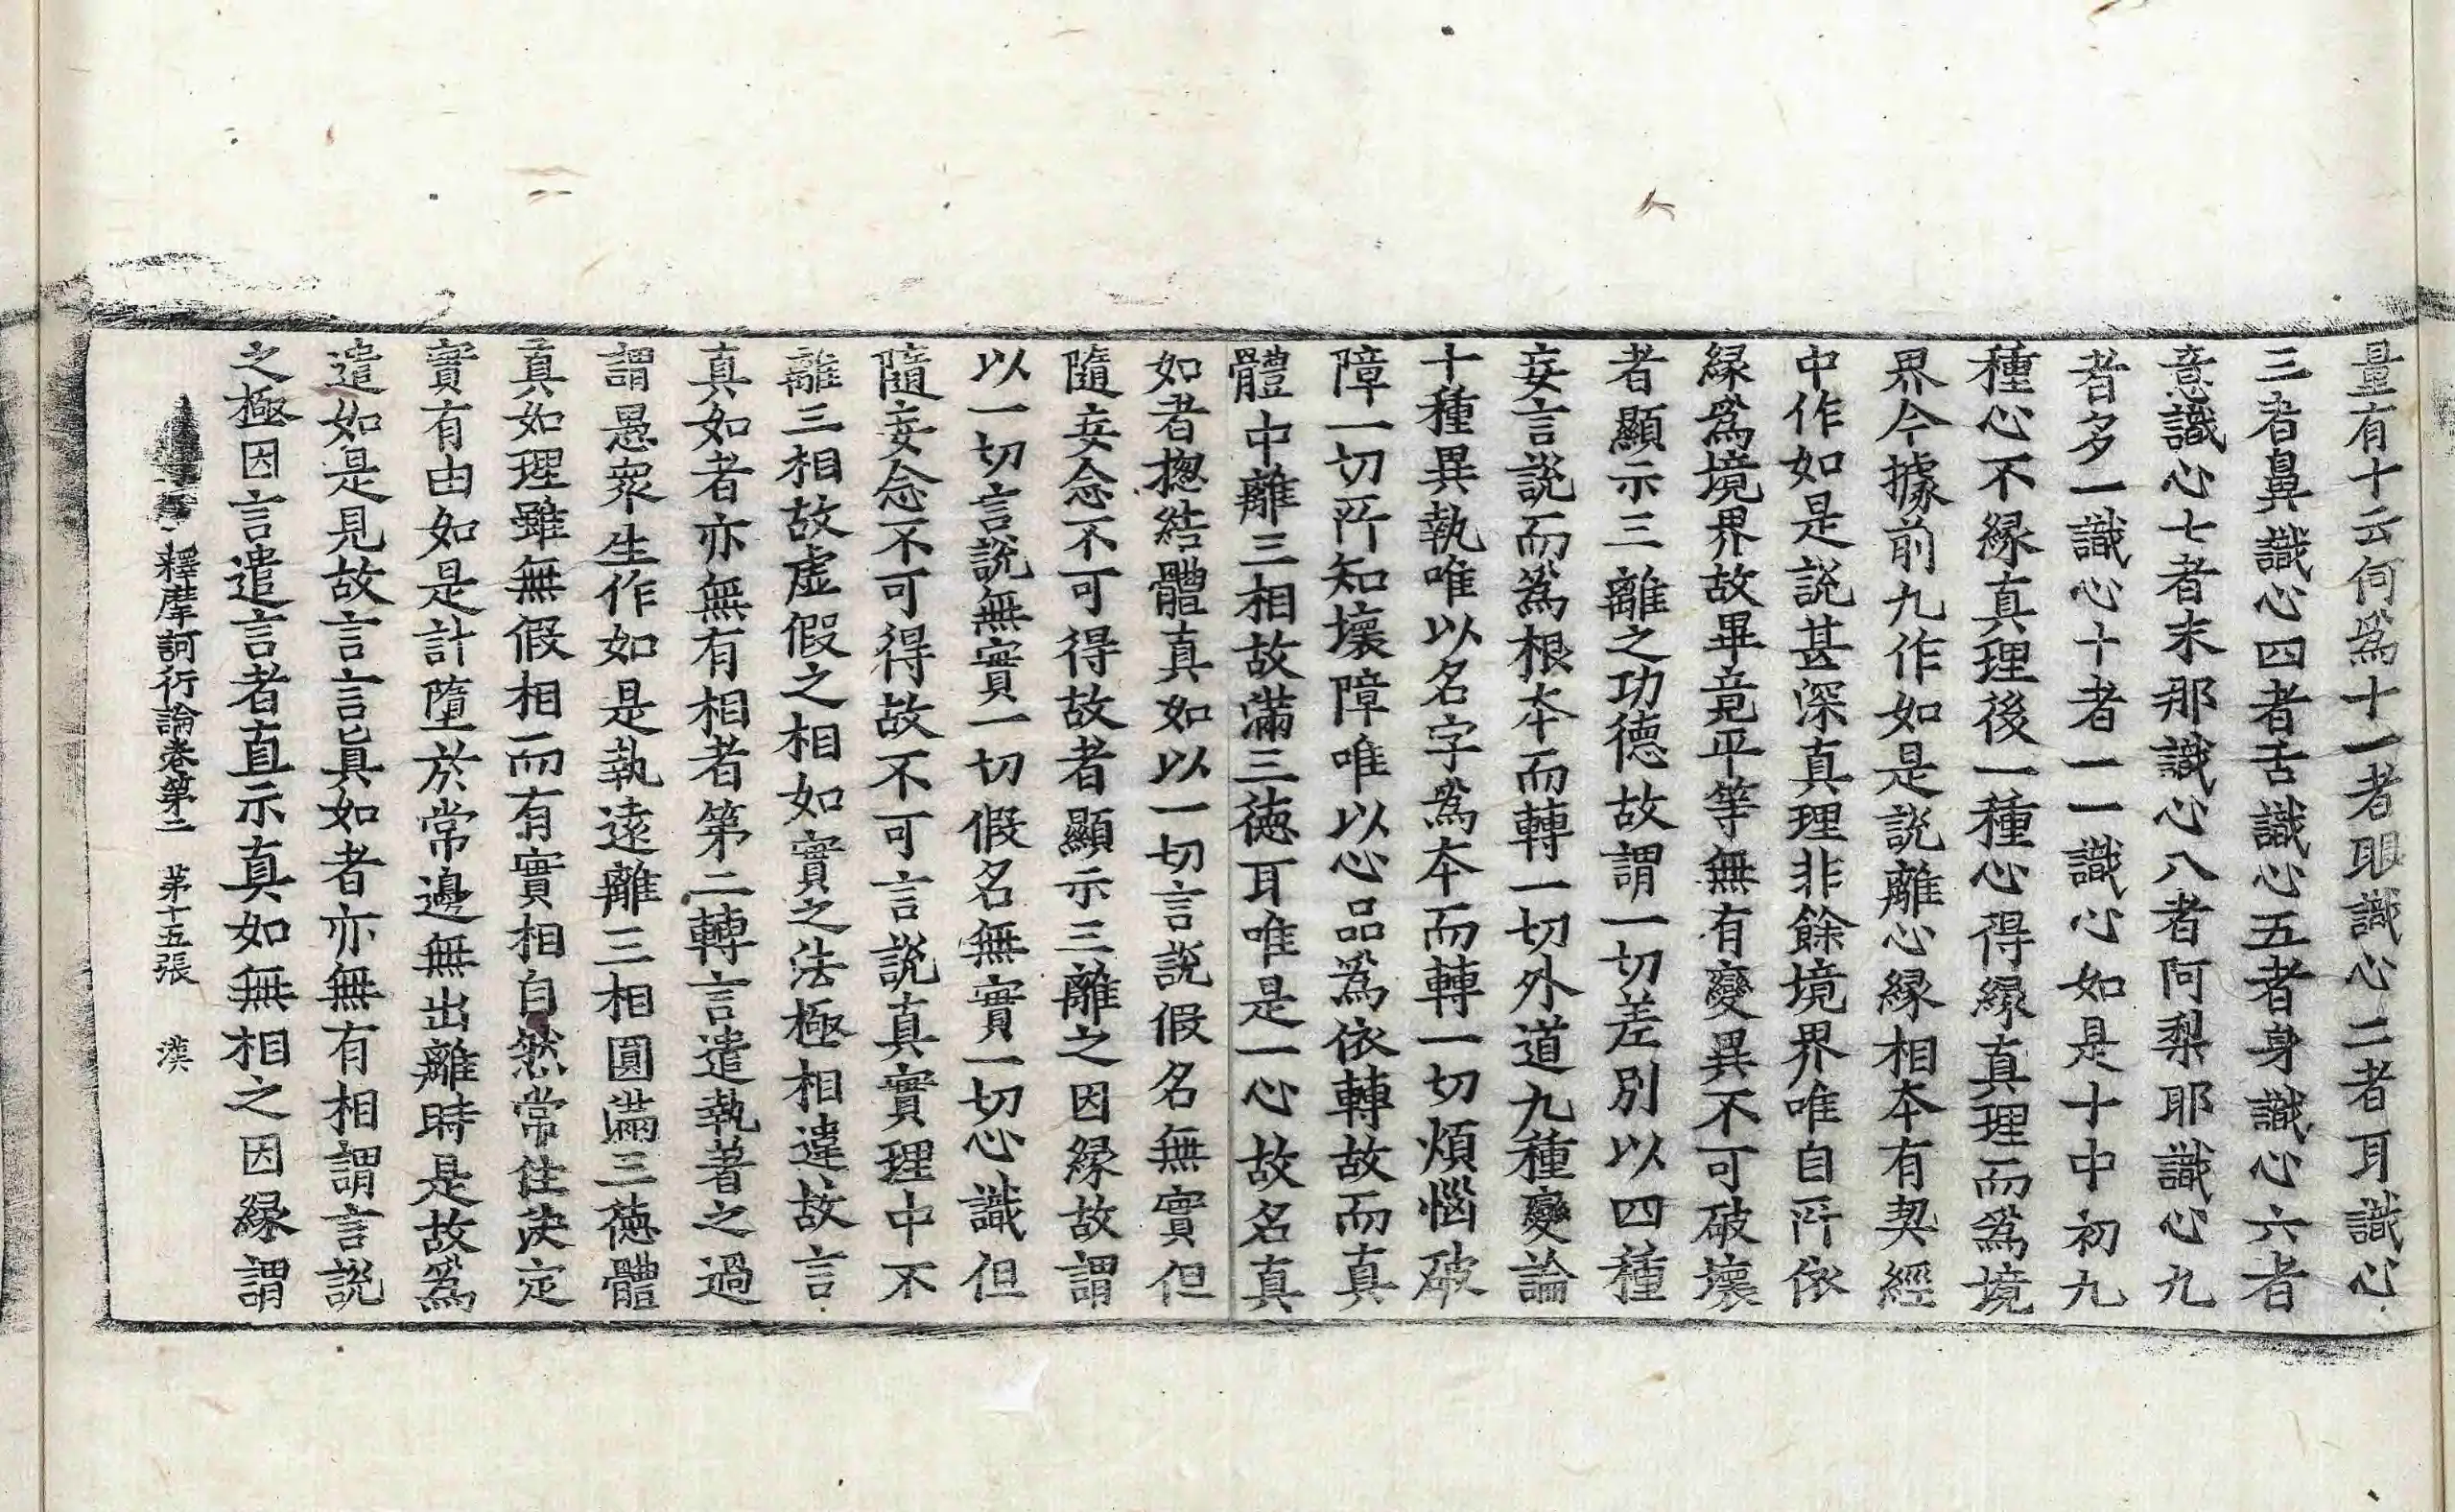 量有十云何爲十一者眼識心二者耳識心
三者鼻識心四者舌識心五者身識心六者
意識心七者末那識心八者阿梨耶識心九
者多一識心十者一一識心如是十中初九
種心不緣真理後一種心得緣真理而爲境
界今據前九作如是說離心緣相本有契經
中作如是說甚深真理非餘境界唯自所依
緣爲境界故畢竟平等無有變異不可破壞
者顯示三離之功德故謂一切差別以四種
妄言說而爲根本而轉一切外道九種變論
十種異執唯以名字爲本而轉一切煩惱破
障一切所知壞障唯以心品爲依轉故而真
體中離三相故滿三德耳唯是一心故名真
如者揔結體真如以一切言說假名無實但
隨妄念不可得故者顯示三離之因緣故謂
以一切言說無實一切假名無實一切心識但
隨妄念不可得故不可言說真實理中不
離三相故虛假之相如實之法極相違故言
真如者亦無有相者第二轉言遣執著之過
謂愚衆生作如是執遠離三相圓滿三德體
真如理雖無假相而有實相自然常住決定
實有由如是計墮於常邊無出離時是故爲
遣如是見故言言眞如者亦無有相謂言說
之極因言遣言者直示真如無相之因緣謂
釋摩訶衍論卷第二 第十五張 漢